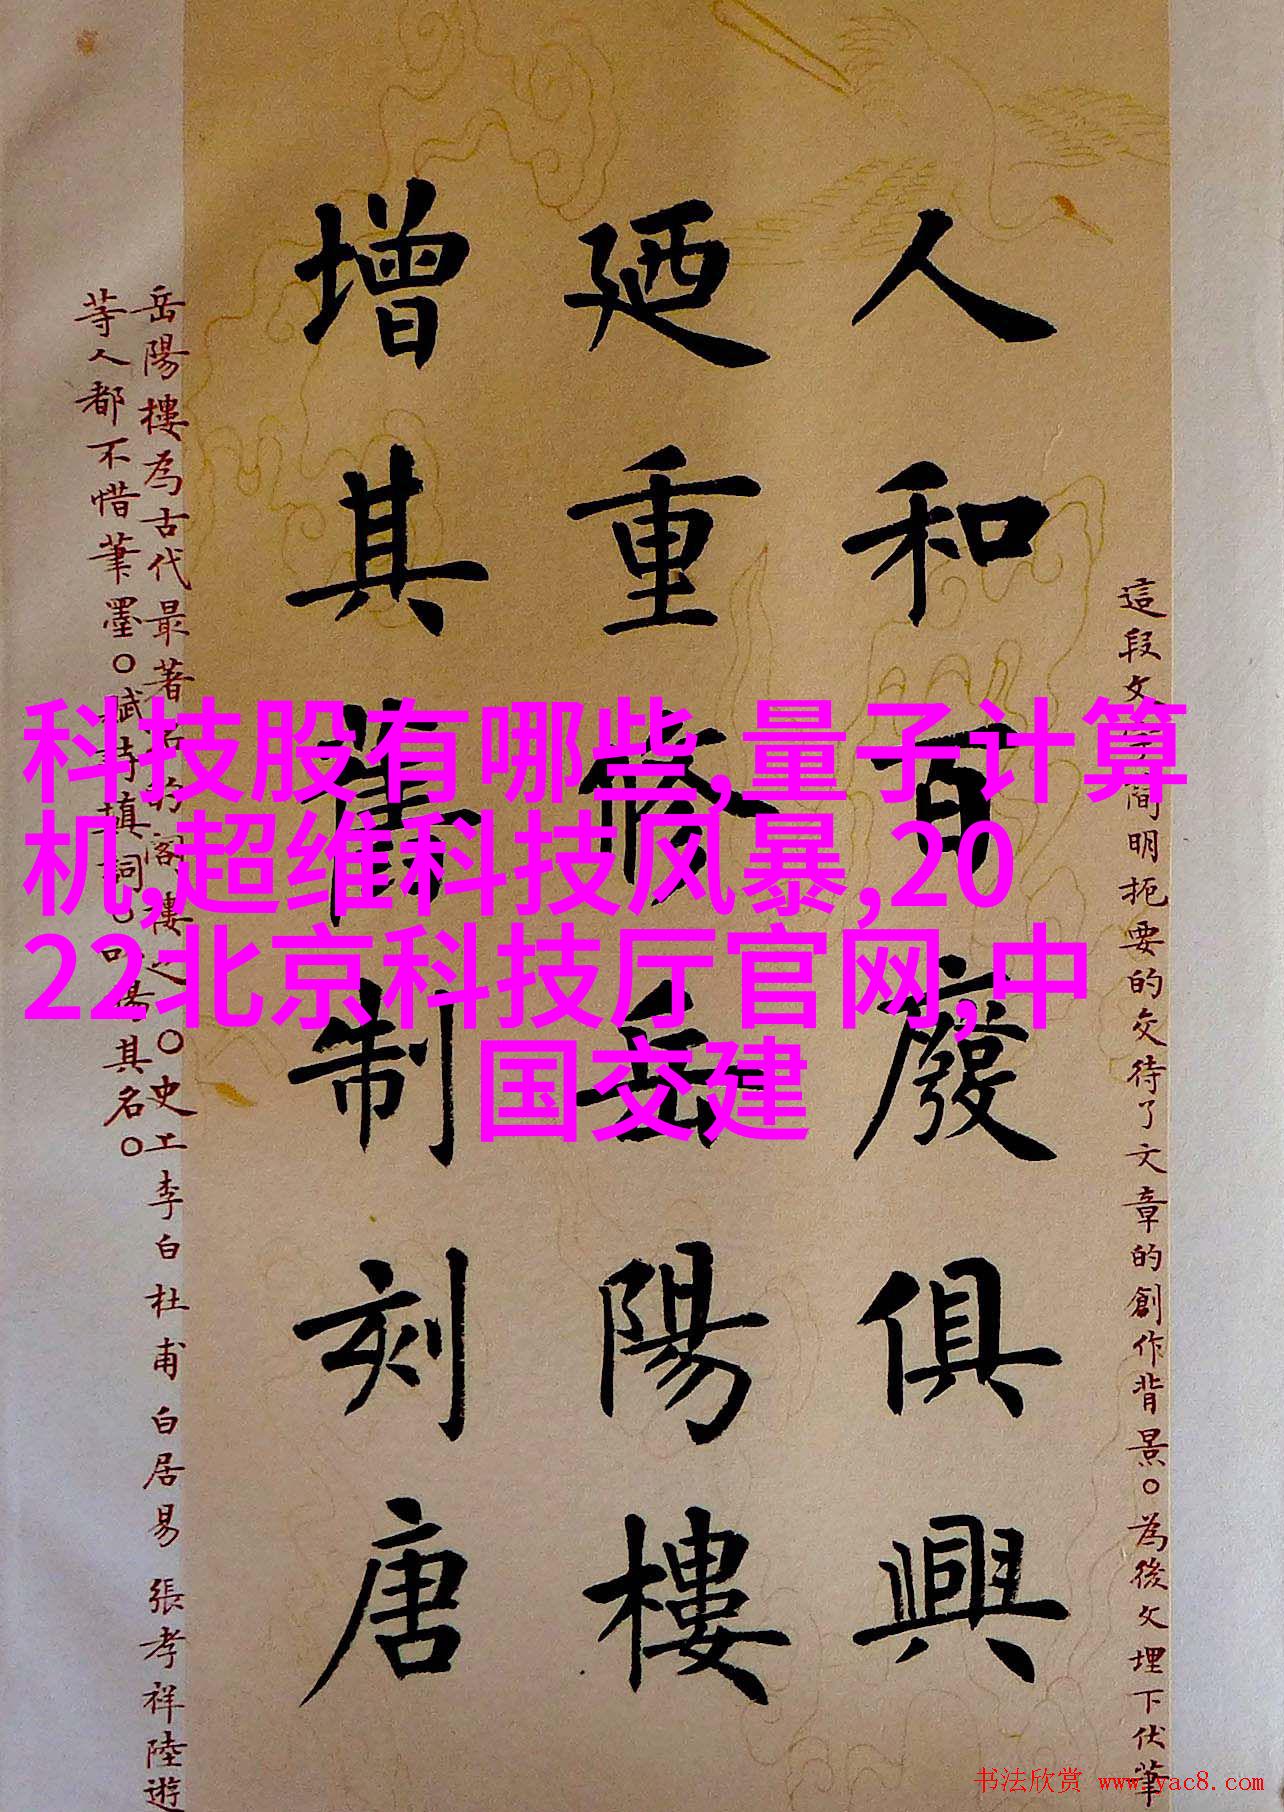 科技股有哪些,量子计算
机,超维科技风暴,20
22北京科技厅官网,中
国交建
這段文 簡明扼要的交待了文章的創作背景。為後文埋下伏筆
人和百廢俱興
廼重修岳陽樓
增其舊制刻唐
岳陽樓為古代最著 的閣樓之 。史上李白杜甫白居易張孝祥陸遊
等人都不惜筆墨。賦詩填詞。 其名。
书法欣赏 www.yac8.com